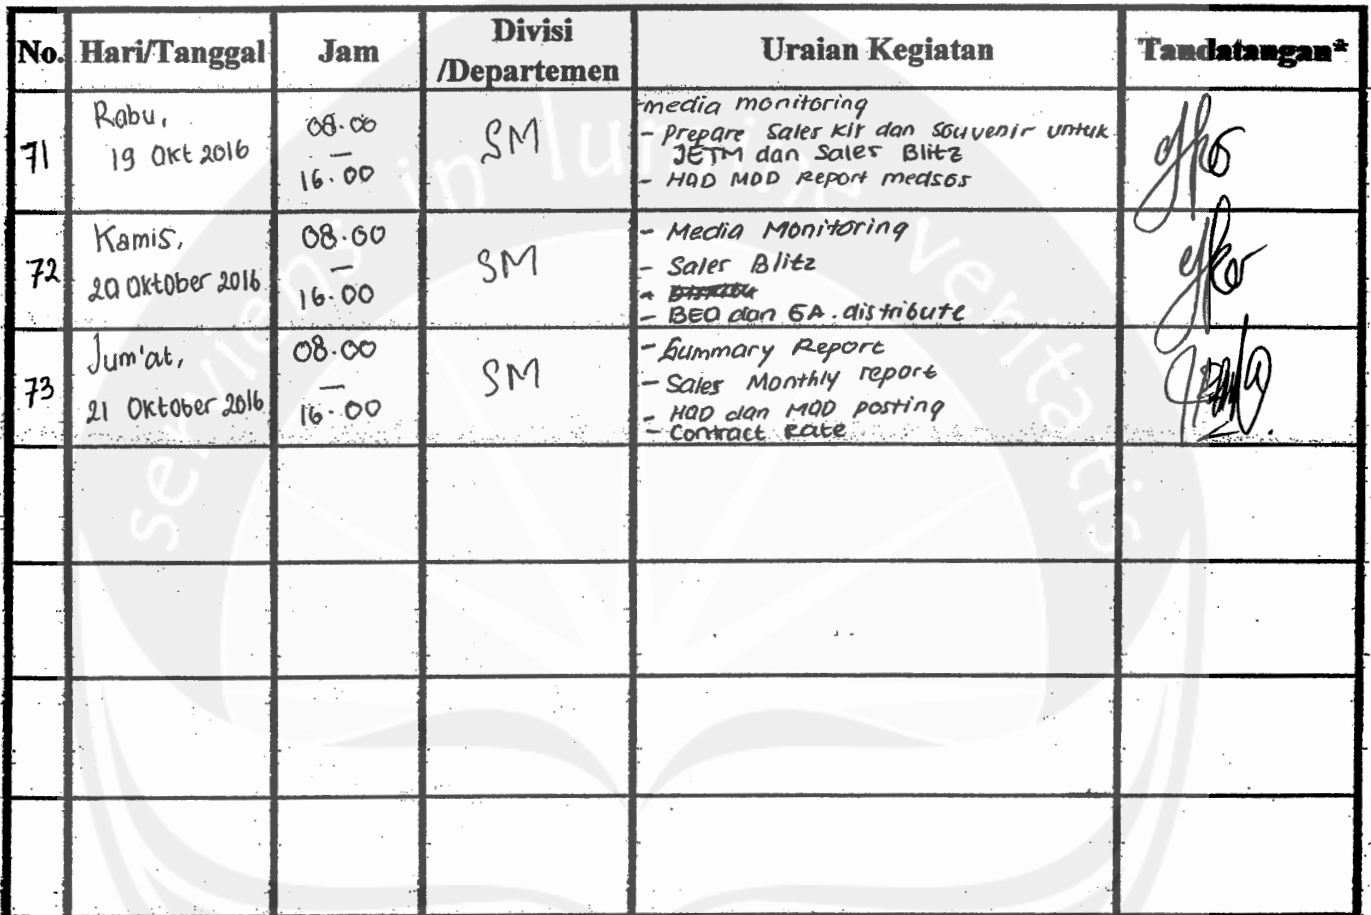 No. Hari/Tanggal Jam Divisi /Departemen Uraian Kegiatan Tandatangan*
71
Rabu,
19 Okt 2016
08.00
–
16.00
SM
media monitoring
- Prepare Sales Kit dan Souvenir untuk
JETM dan Sales Blitz
- HOD MOD Report medsos
72
Kamis,
20 Oktober 2016
08.00
–
16.00
SM
- Media Monitoring
- Sales Blitz
- BEO dan GA. distribute
73
Jum'at,
21 Oktober 2016
08.00
–
16.00
SM
- Summary Report
- Sales Monthly report
- HOD dan MOD posting
- Contract Rate
serviens in lumine veritatis